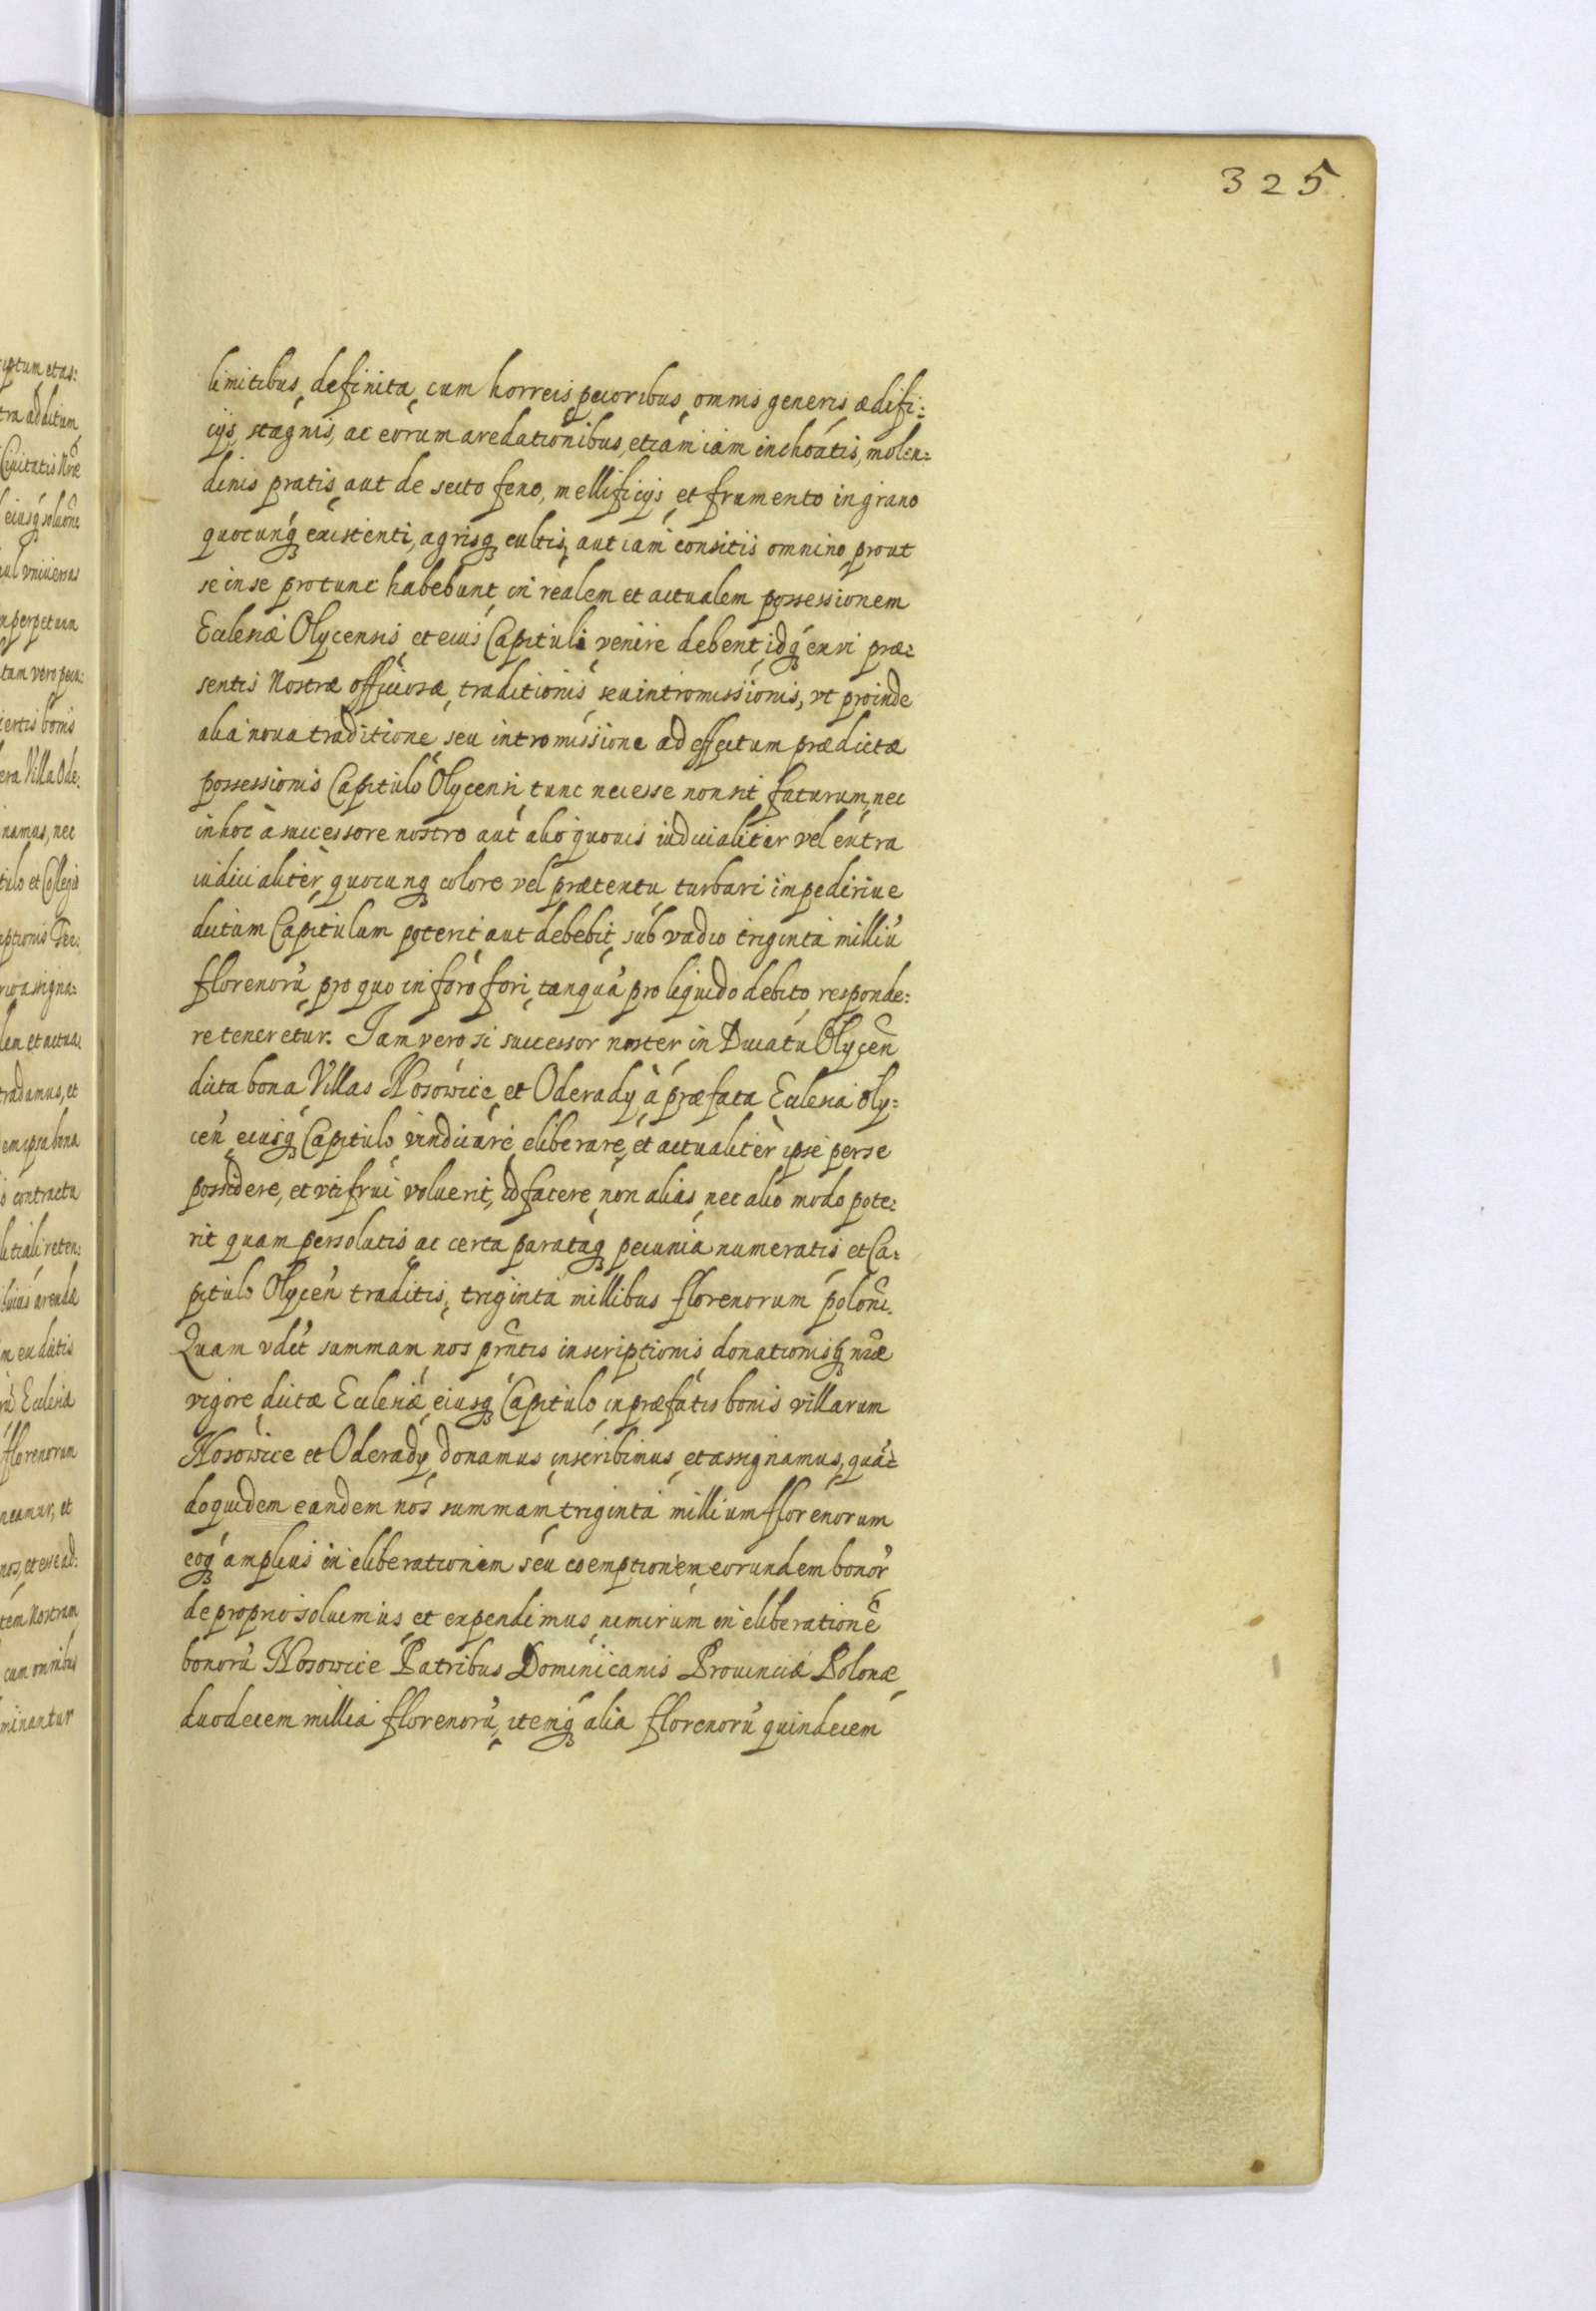 325
limitibus, definita, cum horreis pecoribus, omnis generis ædifi:
cijs, stagnis, ac eorum aredationibus, etiam iam inchoatis, molen:
dinis pratis, aut de secto feno, mellificijs et frumento in grano
quocunq existenti, agrisq cultis, aut iam consitis omnino prout
se in se pro tunc habebunt, in realem et actualem possessionem
Ecclesiæ Olycensis, et eius Capituli, venire debent, idq ex vi præ:
sentis Nostræ officiosæ, traditionis, seu intromissionis, vt proinde
alia noua traditione, seu intromissione ad effectum prædictæ
possessionis Capitulo Olycensi, tunc necesse non sit futurum, nec
in hoc à successore nostro aut alio quouis iudicialiter vel extra
iudicialiter, quocunq colore vel prætextu, turbari impediriue
dictum Capitulum poterit, aut debebit, sub vadio triginta milliu
florenoru, pro quo in foro fori, tanqua pro liquido debito, responde:
re teneretur. Jam vero si successor noster in Ducatu Olycen
dicta bona Villas Nosowice, et Oderady à præfata Ecclesia Oly:
cen, eiusq Capitulo, vindicare, eliberare, et actualiter ipse per se
possidere, et vti frui voluerit, id facere non alias, nec alio modo pote:
rit quam persolutis, ac certa parataq pecunia numeratis, et Ca:
pitulo Olycen traditis, triginta millibus florenorum polon.
Quam vdet summam nos pntis inscriptionis donationisq nræ
vigore dictæ Ecclesiæ, eiusq Capitulo, in præfatis bonis villarum
Nosowice et Oderady, donamus inscribimus, et assignamus, qua:
doquidem eandem nos summam triginta millium florenorum
eoq amplius in eliberationem seu coemptionem eorundem bonor
de proprio soluimus, et expendimus, nimirum in eliberatione
bonoru Nosowice Patribus Dominicanis Prouinciæ Polonæ
duodecem millia florenoru, itemq alia florenoru quindecem